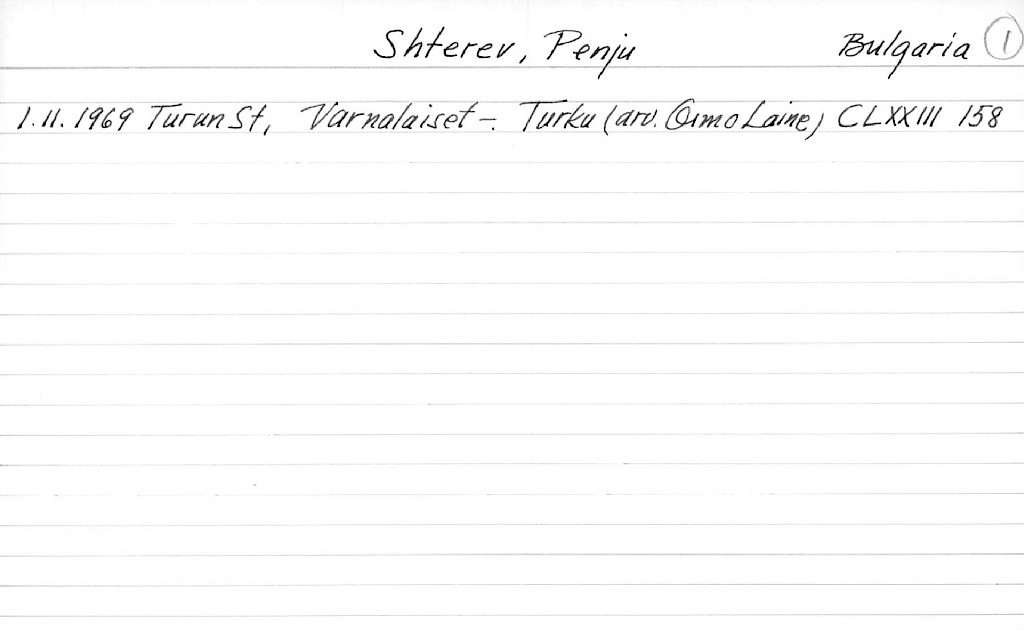 Shterev, Penju Bulgaria 1
1.11.1969 Turun St, Varnalaiset - Turku (arv. Osmo Laine) CLXXIII 158